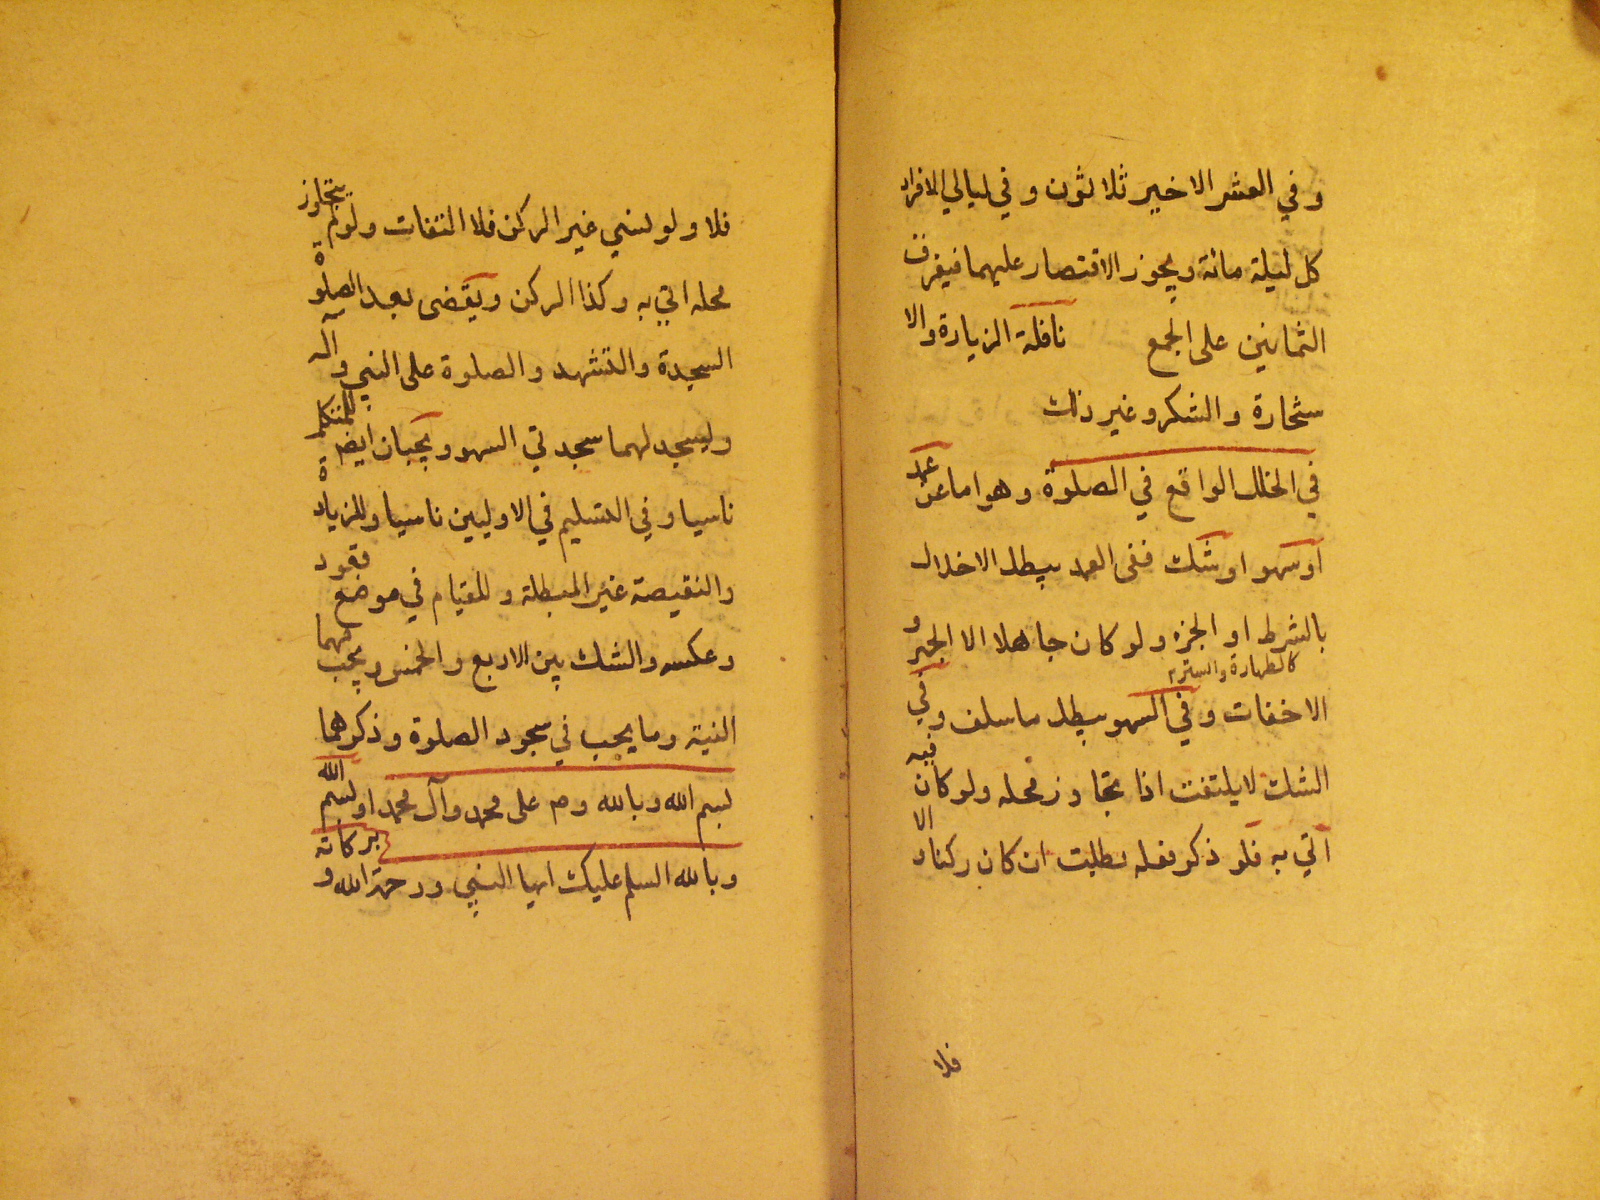 وفي العشر الاخير ثلاثون وفي ليالي الافراد
كل ليلة مائة ويجوز الاقتصار عليها فيفرق
الثمانين على الجمع نافلة الزيارة والا
ستخارة والشكر وغير ذلك
في الخلل الواقع في الصلوة وهو اما عن عمد
او سهو او شك ففى العمد يبطل الاخلال
بالشرط او الجزء ولو كان جاهلا الا الجهر و
كالطهارة والستر
الاخفات وفي السهو يبطل ما سلف وفي
الشك لا يلتفت اذا تجاوز محله ولو كان فيه
اتي به فلو ذكر فعله بطلت ان كان ركنا و الا
فلا
فلا ولو نسي غير الركن فلا التفات ولو لم يتجاوز
محله اتي به وكذا الركن ويقضى بعد الصلوة
السجدة والتشهد والصلوة على النبي وآله
وليسجد لهما سجدتي السهو ويجبان ايضا للمتكلم
ناسيا وفي التسليم في الاوليين ناسيا وللزيادة
والنقيصة غير المبطلة وللقيام في موضع قعود
وعكسه والشك بين الاربع والخمس ويجب فيهما
النية وما يجب في سجود الصلوة وذكرهما
بسم الله وبالله وص على محمد وآل محمد او بسم الله
وبالله السلم عليك ايها النبي ورحمة الله و بركاته